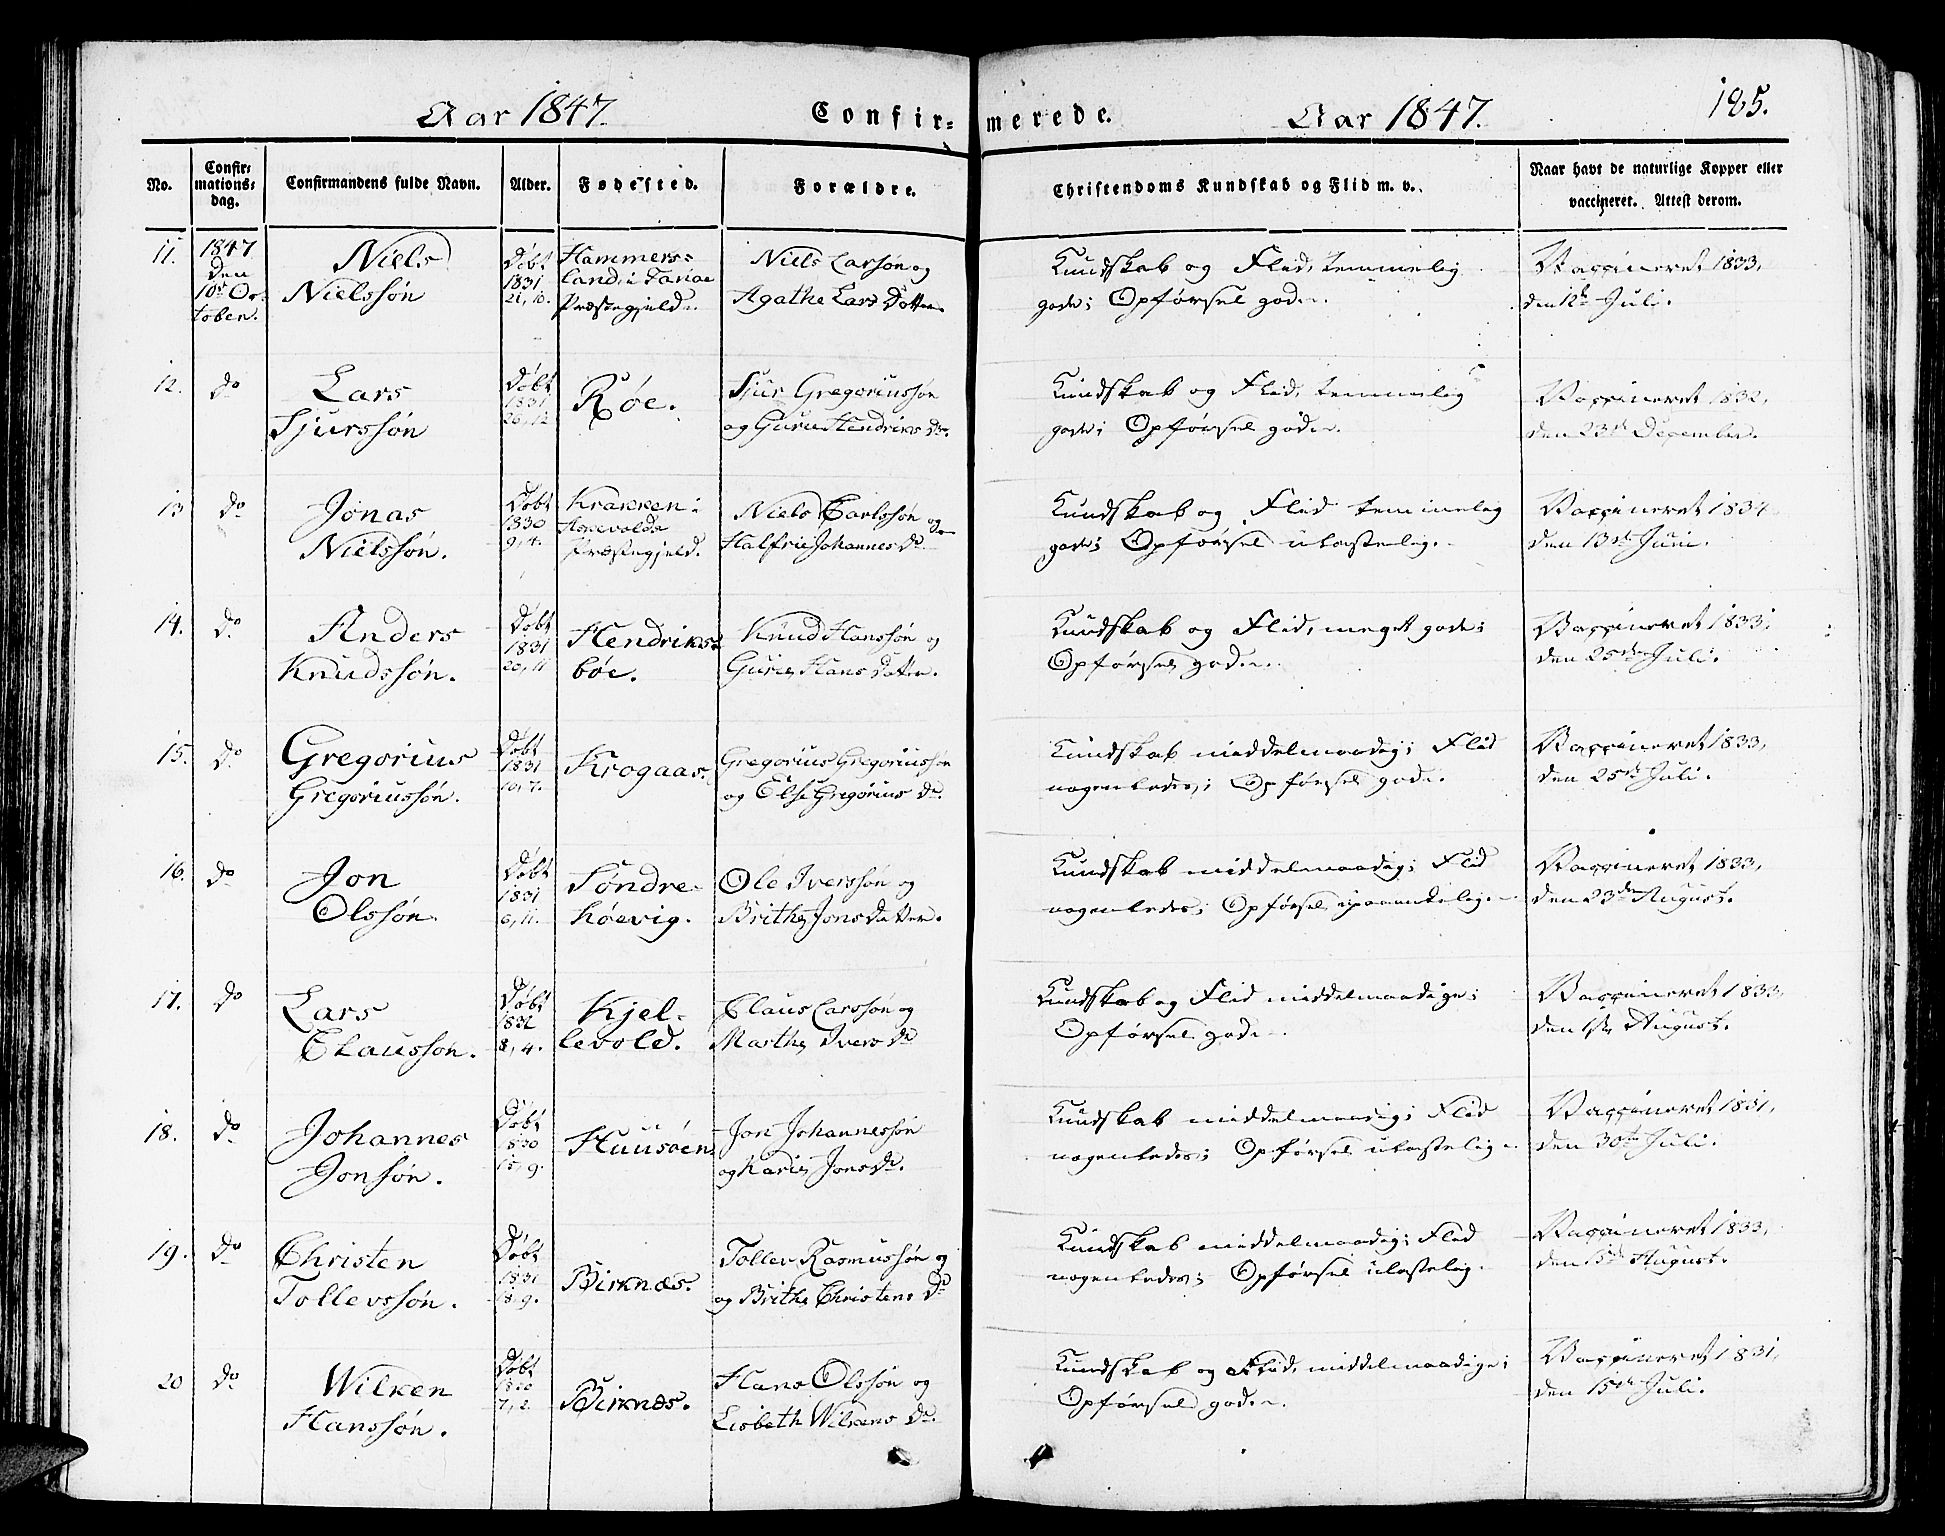 Aar 1847. Confirmerede. Aar 1847. 185.
No. Confirmationsdag. Confirmandens fulde Navn. Alder. Fødested. Forældre. Christendoms Kundskab og Flid m. v. Naar havt de naturlige Kopper eller vaccineret. Attest derom.
11. 1847 Niels Døbt Hammers- Niels Larsøn og Kundskab og Flid, temmelig Vaccineret 1833,
Den Nielssøn 1831 land i Agathe Lars Datter gode; Opførsel god. den 12te Juli.
10de Oc- 21, 10. Præstegjeld.
tober.
12. Do Lars Døbt Røe. Sjur Gregoriussøn Kundskab og Flid, temmelig Vaccineret 1832,
Sjurssøn 1831 og Guru Hendriks Dr. gode; Opførsel god. den 23de December.
26, 12
13 Do Jonas Døbt Krakken i Niels Carlssøn og Kundskab og Flid temmelig Vaccineret 1834
Nielssøn. 1830 Askevolds Johannes Dr gode; Opførsel ulastelig. den 13de Juni.
9, 4. Præstegjeld.
14. Do. Anders Døbt Hendriks- Knud Hanssøn og Kundskab og Flid, meget gode; Vaccineret 1833,
Knudssøn. 1831 bøe. Guri Hans Datter. Opførsel god. den 25de Juli.
20, 11
15. Do. Gregorius Døbt Krogaas. Gregorius Gregoriussøn Kundskab middelmaadig; Flid Vaccineret 1833,
Gregoriussøn. 1831 og Else Gregorius Dr. nogenledes; Opførsel god. den 25de Juli.
10, 7.
16. Do Jon Døbt Søndre- Ole Iverssøn og Kundskab middelmaadig; Flid Vaccineret 1833,
Olssøn. 1831 høevig. Brithe Jons Datter. nogenledes; Opførsel upaaankelig. den 23de August.
6, 11.
17. Do Lars Døbt Kjel- Claus Larssøn og Kundskab og Flid middelmaadige; Vaccineret 1833,
Claussøn. 1832 levold. Marthe Ivers Dr Opførsel god. den August.
8, 4.
18. Do. Johannes Døbt Huusøen. Jon Johannessøn Kundskab middelmaadig; Flid Vaccineret 1831,
Jonsøn. 1830 og Kari Jons Dr. nogenledes; Opførsel ulastelig. den 30te Juli.
15, 9.
19. Do Christen Døbt Birknæs. Tollev Rasmussøn og Kundskab middelmaadig; Flid Vaccineret 1833,
Tollevssøn. 1831 og Brithe Christens Dr nogenledes; Opførsel ulastelig. den 15de August.
18, 9.
20 Do Wilken Døbt Birknæs. Hans Olssøn og Kundskab og Flid, middelmaadige; Vaccineret 1831,
Hanssøn. 1830 Lisbeth Wilkens Dr. Opførsel god. den 15de Juli.
7, 2.